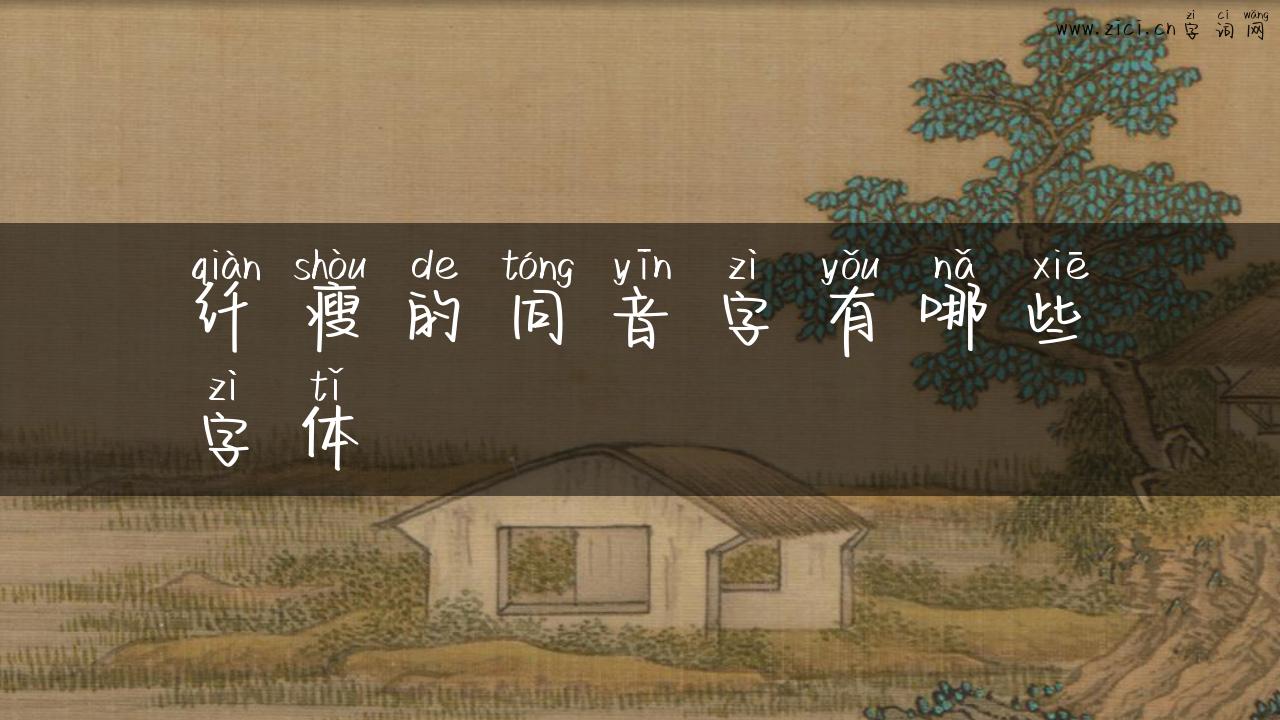 zì cí wǎng
www.zici.cn 字词网
qiàn shòu de tóng yīn zì yǒu nǎ xiē
纤瘦的同音字有哪些
zì tǐ
字体